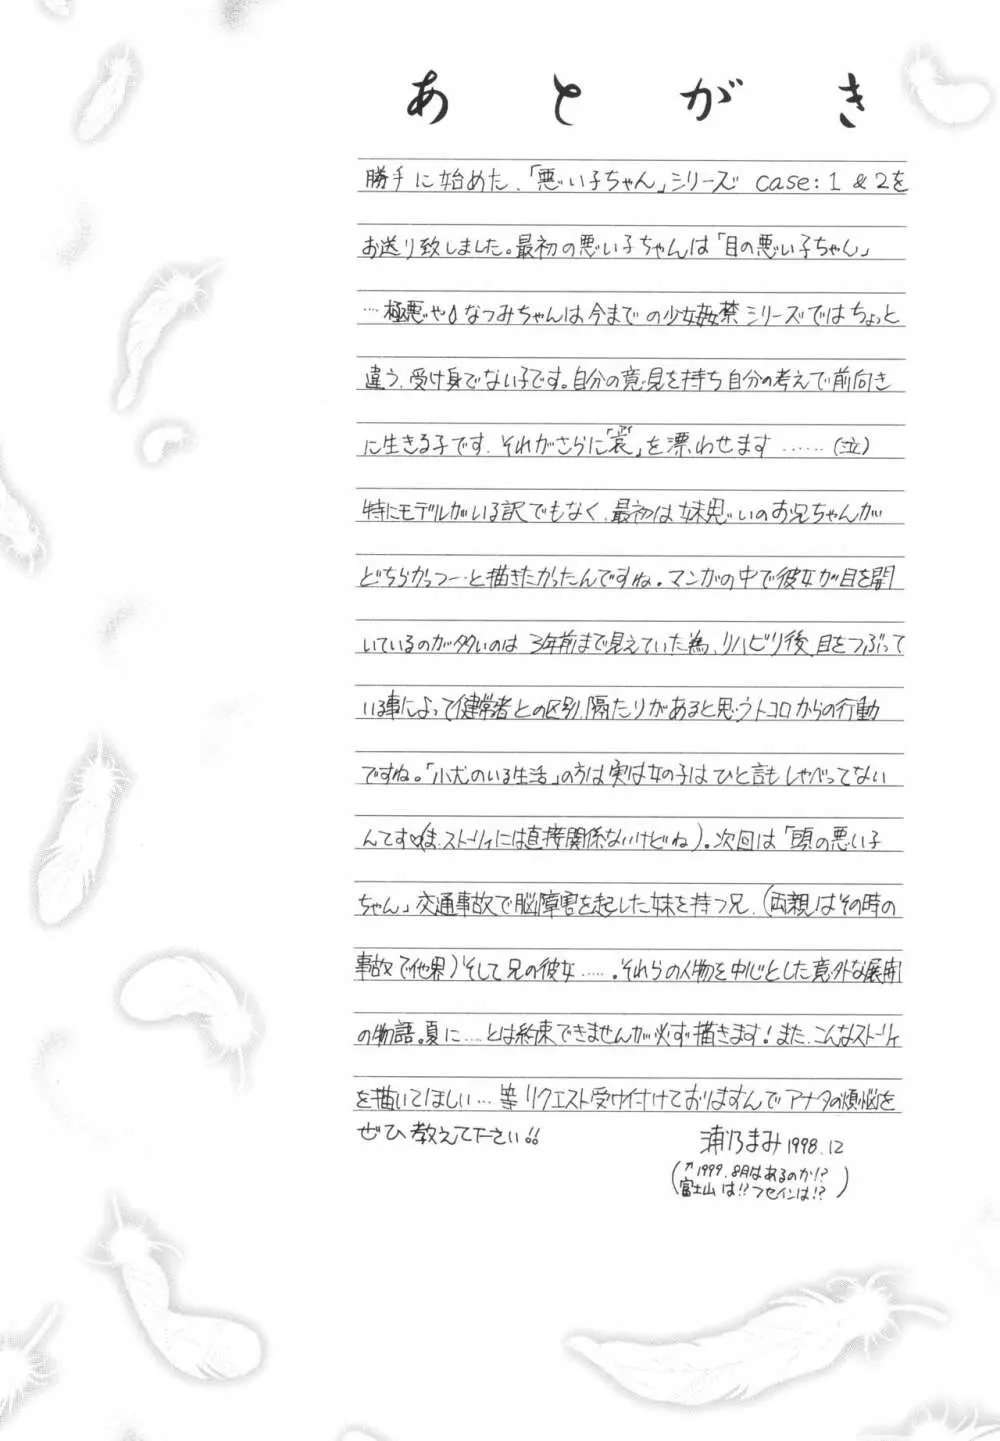 あとがき
勝手に始めた、「悪い子ちゃん」シリーズ case:1 &2を
お送り致しました。最初の悪い子ちゃんは「目の悪い子ちゃん」
…極悪や なつみちゃんは今までの少女姦禁シリーズではちょっと
違う、受け身でない子です。自分の意見を持ち自分の考えで前向き
に生きる子です、それがさらに「哀」を漂わせます……(泣)
特にモデルがいる訳でもなく、最初は妹思いのお兄ちゃんが
どちらかっつー…と描きたかったんですね。マンガの中で彼女が目を開
いているのが多いのは 3年前まで見えていた為、リハビリ後、目をつぶって
いる事によって健常者との区別、隔たりがあると思うトコロからの行動
ですね。「小犬のいる生活」の方は実は女の子はひと言もしゃべってない
んです(ま、ストーリィには直接関係ないけどね)。次回は「頭の悪い子
ちゃん」交通事故で脳障害を起した妹を持つ兄、(両親はその時の
事故で他界)そして兄の彼女……。それらの人物を中心とした意外な展開
の物語。夏に……とは約束できませんが必ず描きます！また、こんなストーリィ
を描いてほしい…等リクエスト受け付けておりますんでアナタの煩悩を
ぜひ教えて下さい!!
浦乃まみ 1998.12
(↑1999.8月はあるのか!?
富士山は!!フセインは!?)